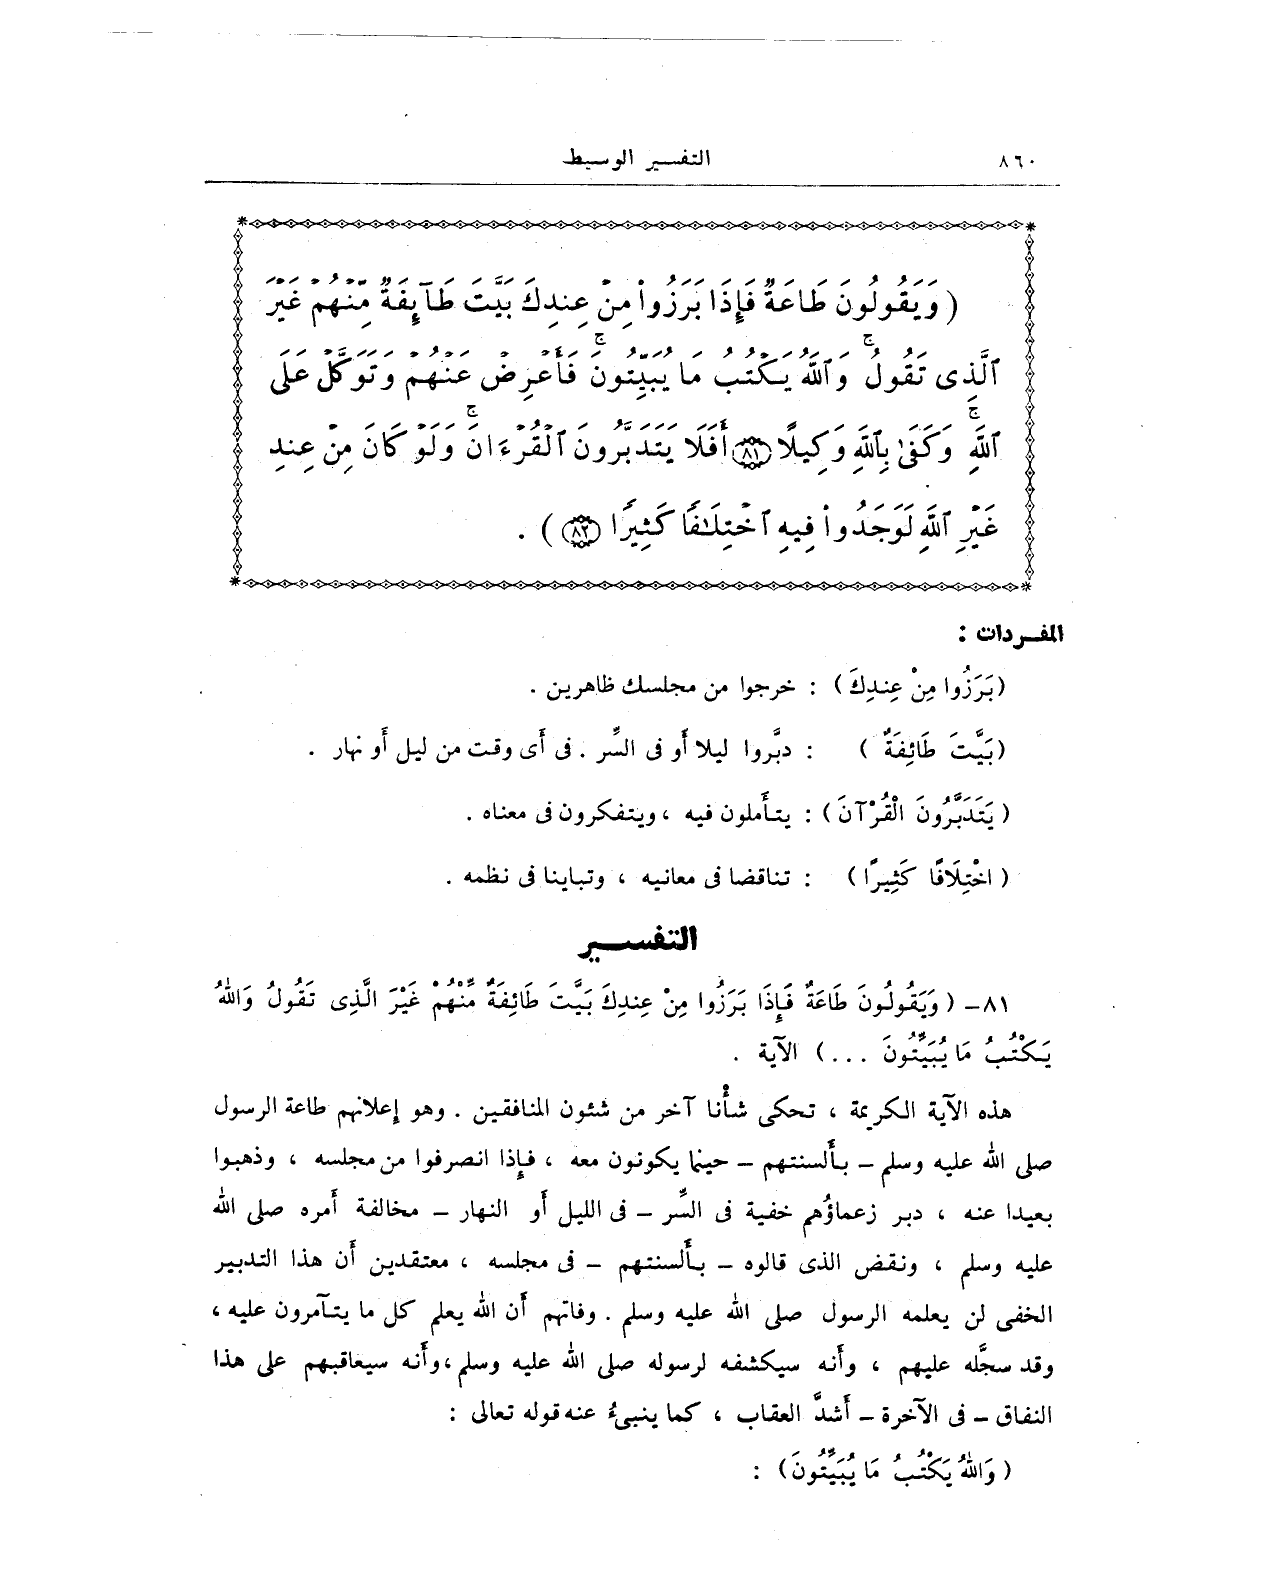 ٨٦٠ التفسير الوسيط
( وَيَقُولُونَ طَاعَةٌ فَإِذَا بَرَزُوا۟ مِنْ عِندِكَ بَيَّتَ طَآئِفَةٌ مِّنْهُمْ غَيْرَ
ٱلَّذِى تَقُولُ ۖ وَٱللَّهُ يَكْتُبُ مَا يُبَيِّتُونَ ۖ فَأَعْرِضْ عَنْهُمْ وَتَوَكَّلْ عَلَى
ٱللَّهِ ۚ وَكَفَىٰ بِٱللَّهِ وَكِيلًا ﴿٨١﴾ أَفَلَا يَتَدَبَّرُونَ ٱلْقُرْءَانَ ۚ وَلَوْ كَانَ مِنْ عِندِ
غَيْرِ ٱللَّهِ لَوَجَدُوا۟ فِيهِ ٱخْتِلَٰفًا كَثِيرًا ﴿٨٢﴾ ) .
المفردات :
(بَرَزُوا مِنْ عِندِكَ) : خرجوا من مجلسك ظاهرين .
(بَيَّتَ طَائِفَةٌ ) : دبَّروا ليلا أو فى السِّر . فى أى وقت من ليل أو نهار .
( يَتَدَبَّرُونَ الْقُرْآنَ ) : يتأملون فيه ، ويتفكرون فى معناه .
( اخْتِلَافًا كَثِيرًا ) : تناقضا فى معانيه ، وتباينا فى نظمه .
التفسير
٨١- ( وَيَقُولُونَ طَاعَةٌ فَإِذَا بَرَزُوا مِنْ عِندِكَ بَيَّتَ طَائِفَةٌ مِّنْهُمْ غَيْرَ الَّذِى تَقُولُ وَاللهُ
يَكْتُبُ مَا يُبَيِّتُونَ ...) الآية .
هذه الآية الكريمة ، تحكى شأنا آخر من شئون المنافقين . وهو إعلانهم طاعة الرسول
صلى الله عليه وسلم – بألسنتهم – حينما يكونون معه ، فإذا انصرفوا من مجلسه ، وذهبوا
بعيدا عنه ، دبر زعماؤهم خفية فى السِّر – فى الليل أو النهار – مخالفة أمره صلى الله
عليه وسلم ، ونقض الذى قالوه – بألسنتهم – فى مجلسه ، معتقدين أن هذا التدبير
الخفى لن يعلمه الرسول صلى الله عليه وسلم . وفاتهم أن الله يعلم كل ما يتآمرون عليه ،
وقد سجَّله عليهم ، وأنه سيكشفه لرسوله صلى الله عليه وسلم ،وأنه سيعاقبهم على هذا
النفاق – فى الآخرة – أشدَّ العقاب ، كما ينبئُ عنه قوله تعالى :
( وَاللهُ يَكْتُبُ مَا يُبَيِّتُونَ) :